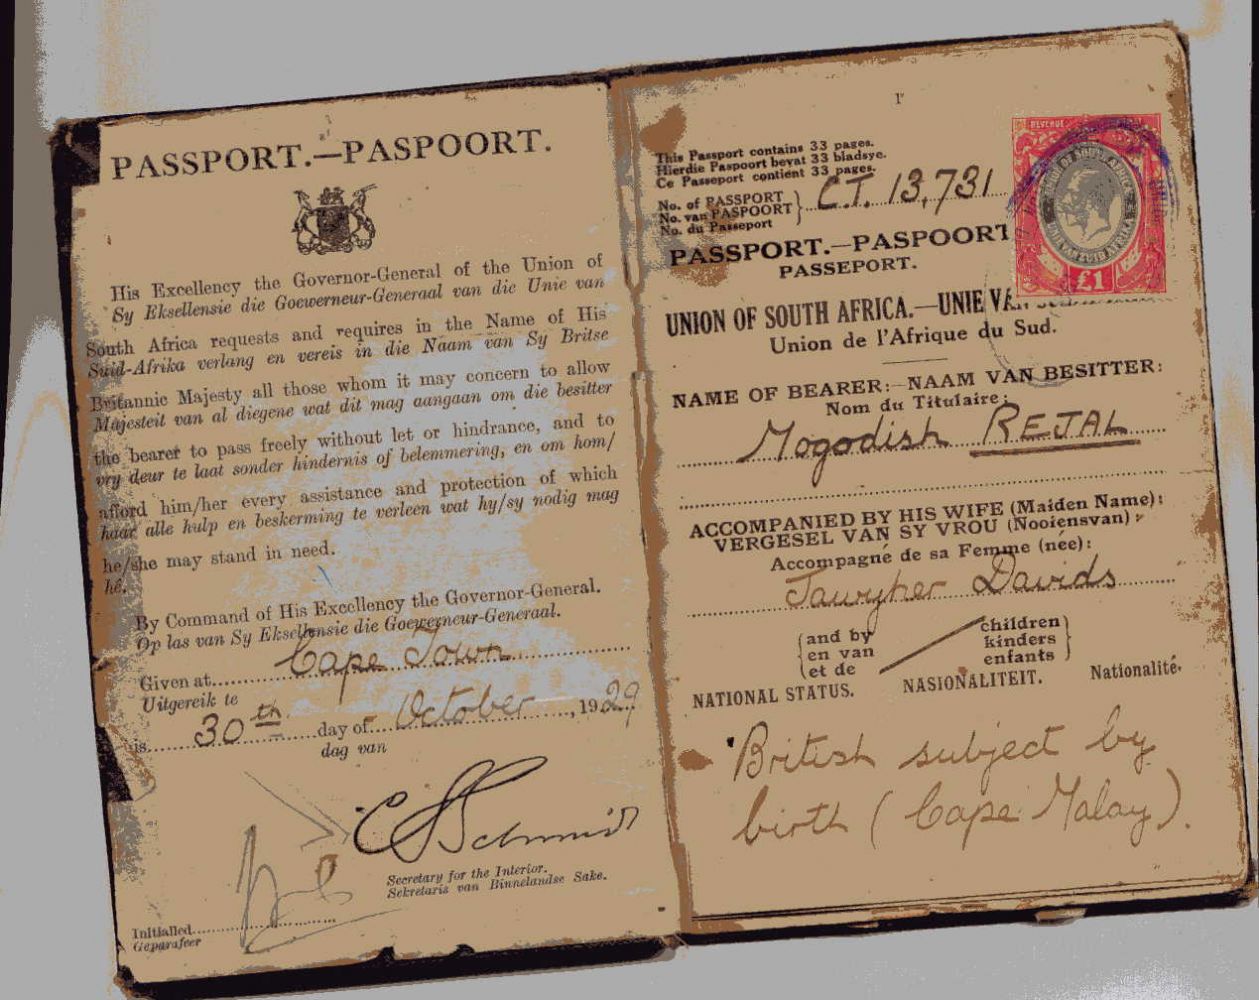 PASSPORT.—PASPOORT.
His Excellency the Governor-General of the Union of
Sy Eksellensie die Goewerneur-Generaal van die Unie van
South Africa requests and requires in the Name of His
Suid-Afrika verlang en vereis in die Naam van Sy Britse
Britannic Majesty all those whom it may concern to allow
Majesteit van al diegene wat dit mag aangaan om die besitter
the bearer to pass freely without let or hindrance, and to
vry deur te laat sonder hindernis of belemmering, en om hom/
afford him/her every assistance and protection of which
haar alle hulp en beskerming te verleen wat hy/sy nodig mag
he/she may stand in need.
hê.
By Command of His Excellency the Governor-General.
Op las van Sy Eksellensie die Goewerneur-Generaal.
Given at Cape Town
Uitgereik te
is 30th day of October, 1929
dag van
Secretary for the Interior.
Sekretaris van Binnelandse Sake.
Initialled
Geparafeer
1
This Passport contains 33 pages.
Hierdie Paspoort bevat 33 bladsye.
Ce Passeport contient 33 pages.
No. of PASSPORT
No. van PASPOORT C.T. 13,731
No. du Passeport
REVENUE
£1
PASSPORT.—PASPOORT
PASSEPORT.
UNION OF SOUTH AFRICA.—UNIE VAN
Union de l'Afrique du Sud.
NAME OF BEARER:—NAAM VAN BESITTER:
Nom du Titulaire:
Mogodish REJAL
ACCOMPANIED BY HIS WIFE (Maiden Name):
VERGESEL VAN SY VROU (Nooiensvan):
Accompagné de sa Femme (née):
Jawyher Davids
and by children
en van kinders
et de enfants
NATIONAL STATUS. NASIONALITEIT. Nationalité.
British subject by
birth (Cape Malay).